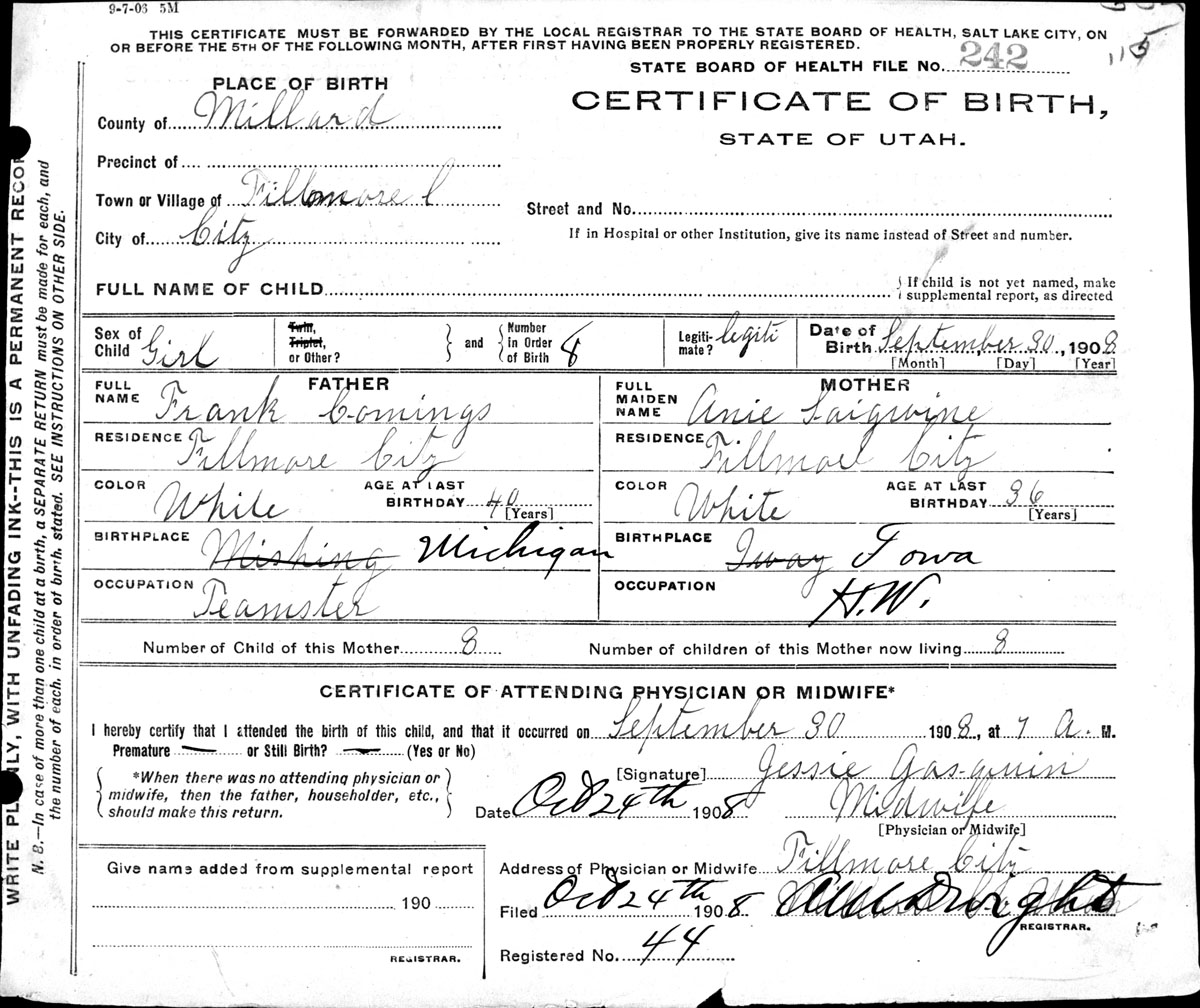 9-7-03 5M
THIS CERTIFICATE MUST BE FORWARDED BY THE LOCAL REGISTRAR TO THE STATE BOARD OF HEALTH, SALT LAKE CITY, ON
OR BEFORE THE 5TH OF THE FOLLOWING MONTH, AFTER FIRST HAVING BEEN PROPERLY REGISTERED.
STATE BOARD OF HEALTH FILE No. 242
115
PLACE OF BIRTH
CERTIFICATE OF BIRTH,
STATE OF UTAH.
County of Millard
Precinct of
Town or Village of Fillmore C
City of City
Street and No.
If in Hospital or other Institution, give its name instead of Street and number.
FULL NAME OF CHILD
If child is not yet named, make
supplemental report, as directed
Sex of Child Girl
Twin,
Triplet,
or Other?
and
Number in Order of Birth 8
Legitimate? legiti
Date of Birth September 30, 1908
[Month] [Day] [Year]
FATHER
FULL NAME Frank Comings
RESIDENCE Fillmore City
COLOR White AGE AT LAST BIRTHDAY 40
[Years]
BIRTHPLACE Mishing Michigan
OCCUPATION Teamster
MOTHER
FULL MAIDEN NAME Anie Saigwine
RESIDENCE Fillmoel City
COLOR White AGE AT LAST BIRTHDAY 36
[Years]
BIRTHPLACE Iway Iowa
OCCUPATION H.W.
Number of Child of this Mother 8 Number of children of this Mother now living 8
CERTIFICATE OF ATTENDING PHYSICIAN OR MIDWIFE*
I hereby certify that I attended the birth of this child, and that it occurred on September 30 1908, at 7 A. M.
Premature — or Still Birth? — (Yes or No)
*When there was no attending physician or
midwife, then the father, householder, etc.,
should make this return.
[Signature] Jessie Gasquin
Date Oct 24th 1908 Midwife
[Physician or Midwife]
Give name added from supplemental report
190
REGISTRAR.
Address of Physician or Midwife Fillmore City
Filed Oct 24th 1908 Dwight
REGISTRAR.
Registered No. 44
WRITE PLAINLY, WITH UNFADING INK--THIS IS A PERMANENT RECOR
N. B.—In case of more than one child at a birth, a SEPARATE RETURN must be made for each, and
the number of each, in order of birth, stated. SEE INSTRUCTIONS ON OTHER SIDE.